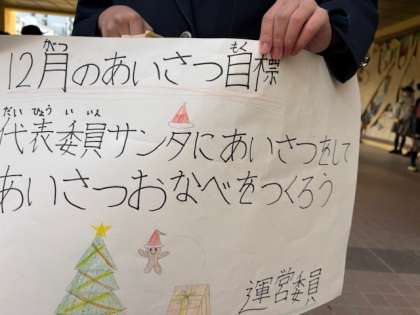 がつ もく
12月のあいさつ目標
だいひょういいん
代表委員サンタにあいさつをして
あいさつおなべをつくろう
運営委員